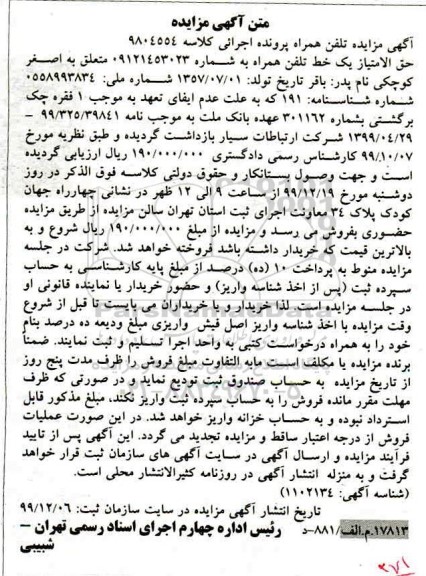 متن آگهی مزایده
آگهی مزایده تلفن همراه پرونده اجرائی کلاسه ۹۸۰۴۵۵۴
حق الامتیاز یک خط تلفن همراه به شماره ۰۹۱۲۱۴۵۳۰۲۳ متعلق به اصغر
کوچکی نام پدر: باقر تاریخ تولد: ۱۳۵۷/۰۷/۰۱ شماره ملی: ۰۵۵۸۹۹۳۸۳۴
شماره شناسنامه: ۱۹۱ که به علت عدم ایفای تعهد به موجب ۱ فقره چک
برگشتی بشماره ۳۰۱۱۶۲ عهده بانک ملت به موجب نامه ۹۹/۳۲۵/۳۹۸۴۱ –
۱۳۹۹/۰۴/۲۹ شرکت ارتباطات سیار بازداشت گردیده و طبق نظریه مورخ
۹۹/۱۰/۰۷ کارشناس رسمی دادگستری ۱۹۰/۰۰۰/۰۰۰ ریال ارزیابی گردیده
است و جهت وصول بستانکار و حقوق دولتی کلاسه فوق الذکر در روز
دوشنبه مورخ ۹۹/۱۲/۱۹ از ساعت ۹ الی ۱۲ ظهر در نشانی چهارراه جهان
کودک پلاک ۳۴ معاونت اجرای ثبت استان تهران سالن مزایده از طریق مزایده
حضوری بفروش می رسد و مزایده از مبلغ ۱۹۰/۰۰۰/۰۰۰ ریال شروع و به
بالاترین قیمت که خریدار داشته باشد فروخته خواهد شد. شرکت در جلسه
مزایده منوط به پرداخت ۱۰ (ده) درصد از مبلغ پایه کارشناسی به حساب
سپرده ثبت (پس از اخذ شناسه واریز) و حضور خریدار یا نماینده قانونی او
در جلسه مزایده است. لذا خریدار و یا خریداران می بایست تا قبل از شروع
وقت مزایده با اخذ شناسه واریز اصل فیش واریزی مبلغ ودیعه ده درصد بنام
خود را به همراه درخواست کتبی به واحد اجرا تسلیم و ثبت نمایند. ضمناً
برنده مزایده یا مکلف است مابه التفاوت مبلغ فروش را ظرف مدت پنج روز
از تاریخ مزایده به حساب صندوق ثبت تودیع نماید و در صورتی که ظرف
مهلت مقرر مانده فروش را به حساب سپرده ثبت واریز نکند، مبلغ مذکور قابل
استرداد نبوده و به حساب خزانه واریز خواهد شد. در این صورت عملیات
فروش از درجه اعتبار ساقط و مزایده تجدید می گردد. این آگهی پس از تایید
فرآیند مزایده و ارسال آگهی در سایت آگهی های سازمان ثبت قرار خواهد
گرفت و به منزله انتشار آگهی در روزنامه کثیرالانتشار محلی است.
(شناسه آگهی: ۱۱۰۲۱۳۴)
تاریخ انتشار آگهی مزایده در سایت سازمان ثبت: ۹۹/۱۲/۰۶
۱۷۸۱۳.م.الف/۸۸۱-د رئیس اداره چهارم اجرای اسناد رسمی تهران –
شبیبی
۳۷۱